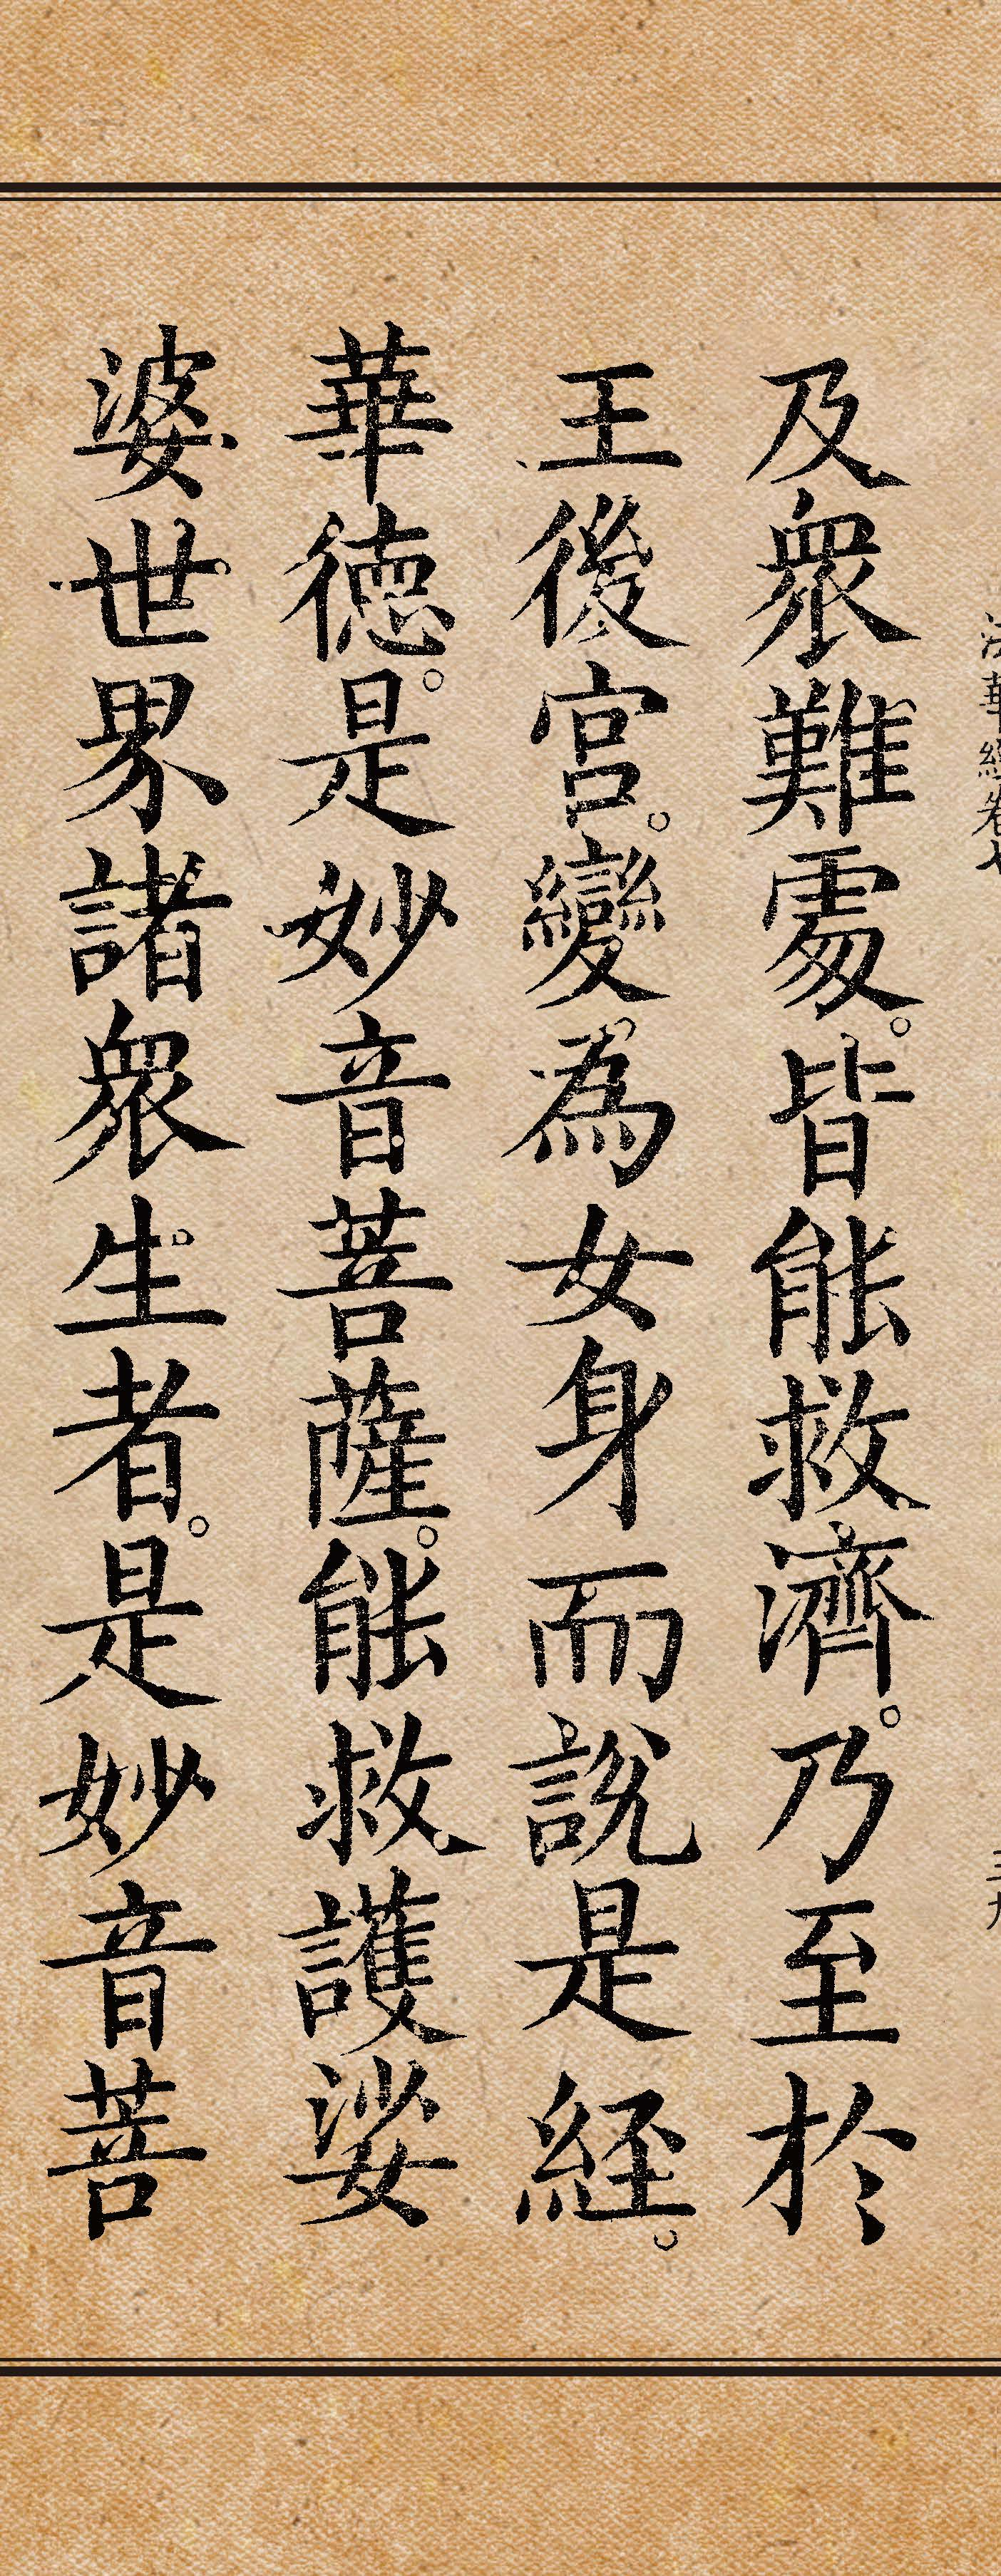 及衆難處。皆能救濟。乃至於
王後宮。變為女身而說是経。
華德。是妙音菩薩。能救護娑
婆世界諸衆生者。是妙音菩